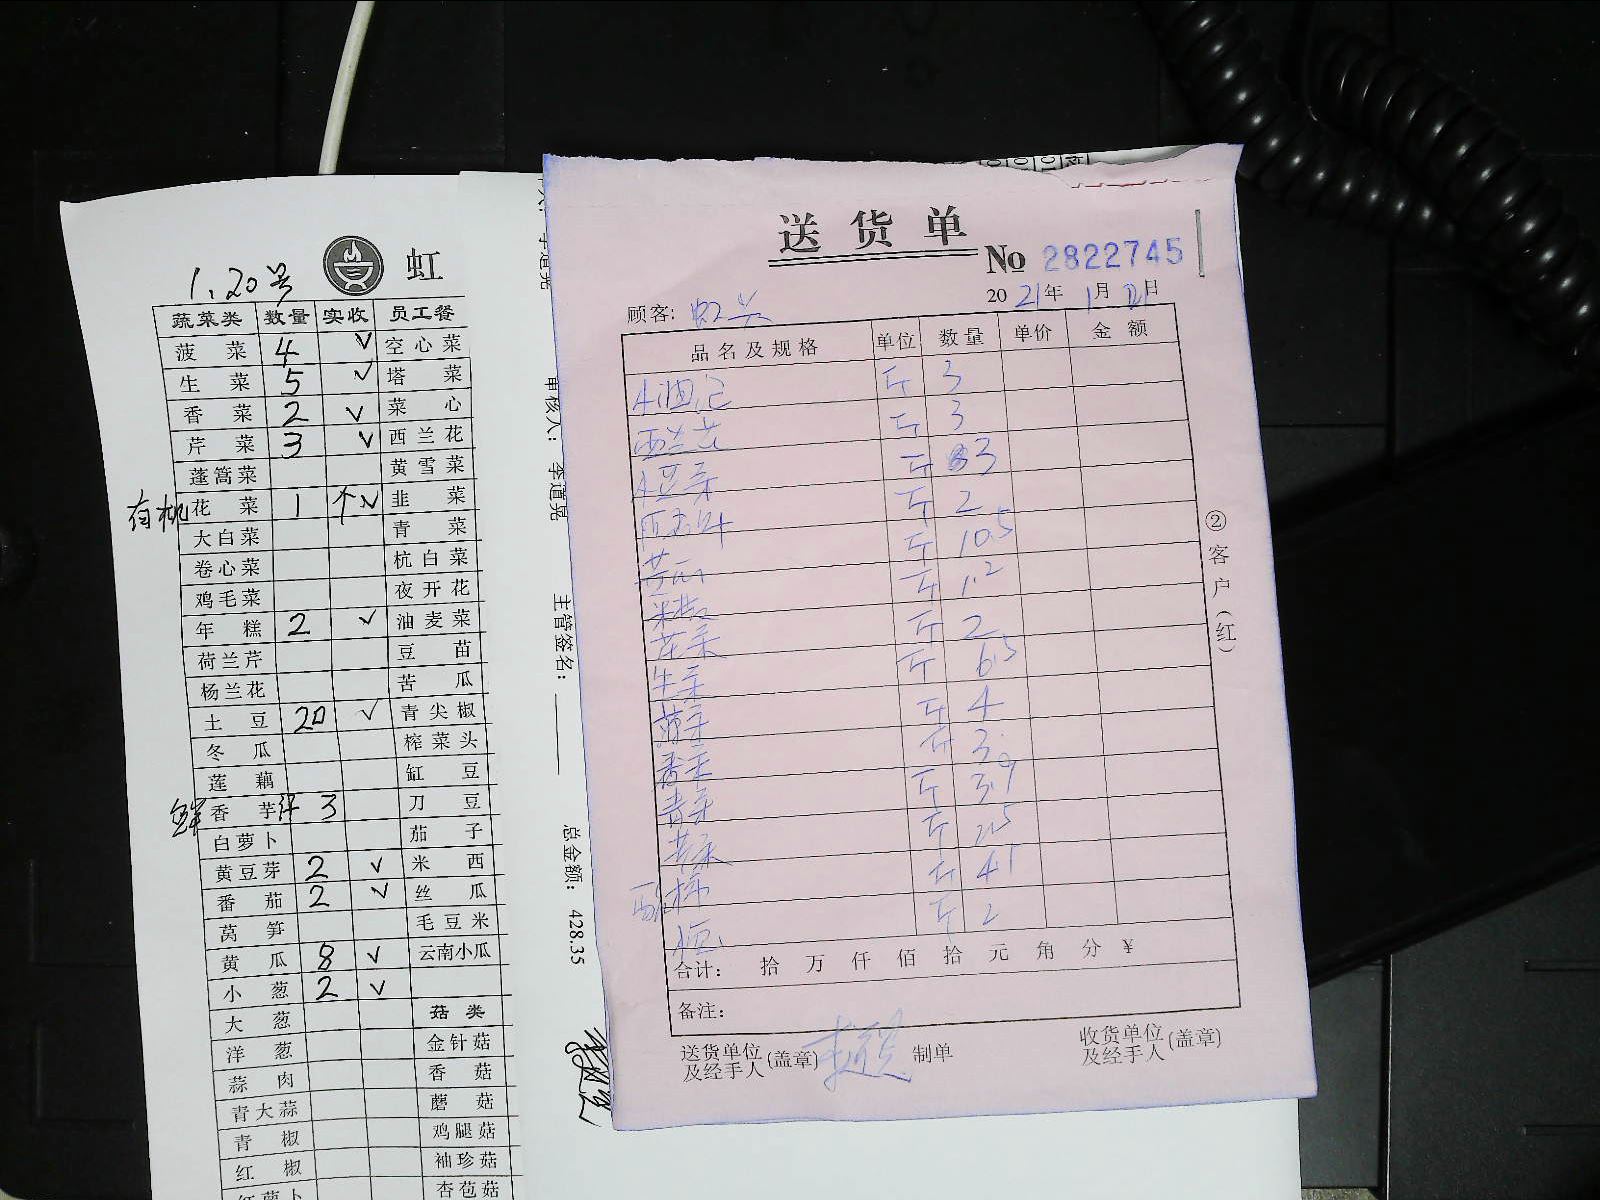 1.20号
虹
蔬菜类 数量 实收 员工餐
菠菜 4 √ 空心菜
生菜 5 √ 塔菜
香菜 2 √ 菜心
芹菜 3 √ 西兰花
蓬篙菜 黄雪菜
有机花菜 1个 √ 韭菜
大白菜 青菜
卷心菜 杭白菜
鸡毛菜 夜开花
年糕 2 √ 油麦菜
荷兰芹 豆苗
杨兰花 苦瓜
土豆 20 √ 青尖椒
冬瓜 榨菜头
莲藕 缸豆
鲜香芋仔 3 刀豆
白萝卜 茄子
黄豆芽 2 √ 米西
番茄 2 √ 丝瓜
莴笋 毛豆米
黄瓜 8 √ 云南小瓜
小葱 2 √
大葱 菇类
洋葱 金针菇
蒜肉 香菇
青大蒜 蘑菇
青椒 鸡腿菇
红椒 袖珍菇
红萝卜 杏苞菇
审核人: 李道晃
主管签名:
总金额: 428.35
送货单
No 2822745
顾客: 虹
2021年1月21日
品名及规格 单位 数量 单价 金额
斤 3
西兰花 斤 3
斤 3
斤 2
黄瓜 斤 10.5
米椒 斤 1.2
花菜 斤 2
生菜 斤 6.5
菠菜 斤 4
香菜 斤 3
青菜 斤 3.9
斤 2.5
斤 4.1
斤 2
合计: 拾 万 仟 佰 拾 元 角 分 ¥
备注:
送货单位及经手人(盖章) 李道晃 制单
收货单位及经手人(盖章)
②客户(红)